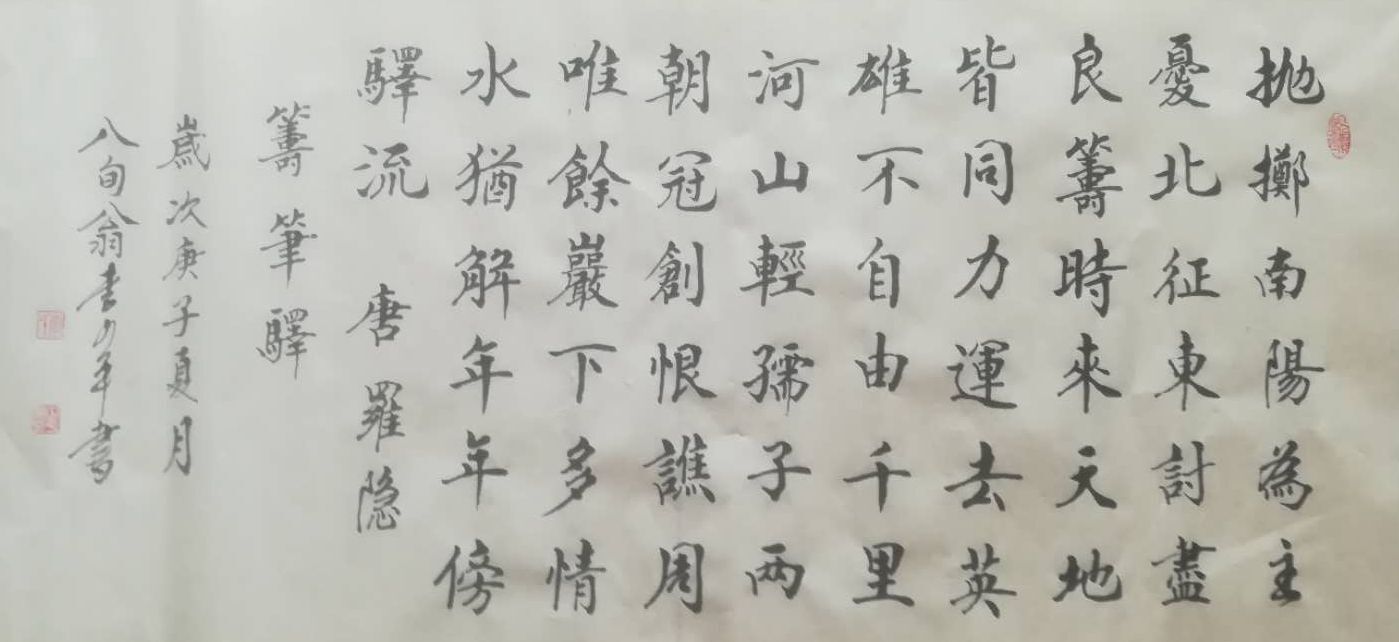 拋擲南陽為主
憂北征東討盡
良籌時來天地
皆同力運去英
雄不自由千里
河山輕孺子兩
朝冠劍恨譙周
唯餘巖下多情
水猶解年年傍
驛流 唐 羅隐
籌筆驛
歲次庚子夏月
八旬翁李少平書